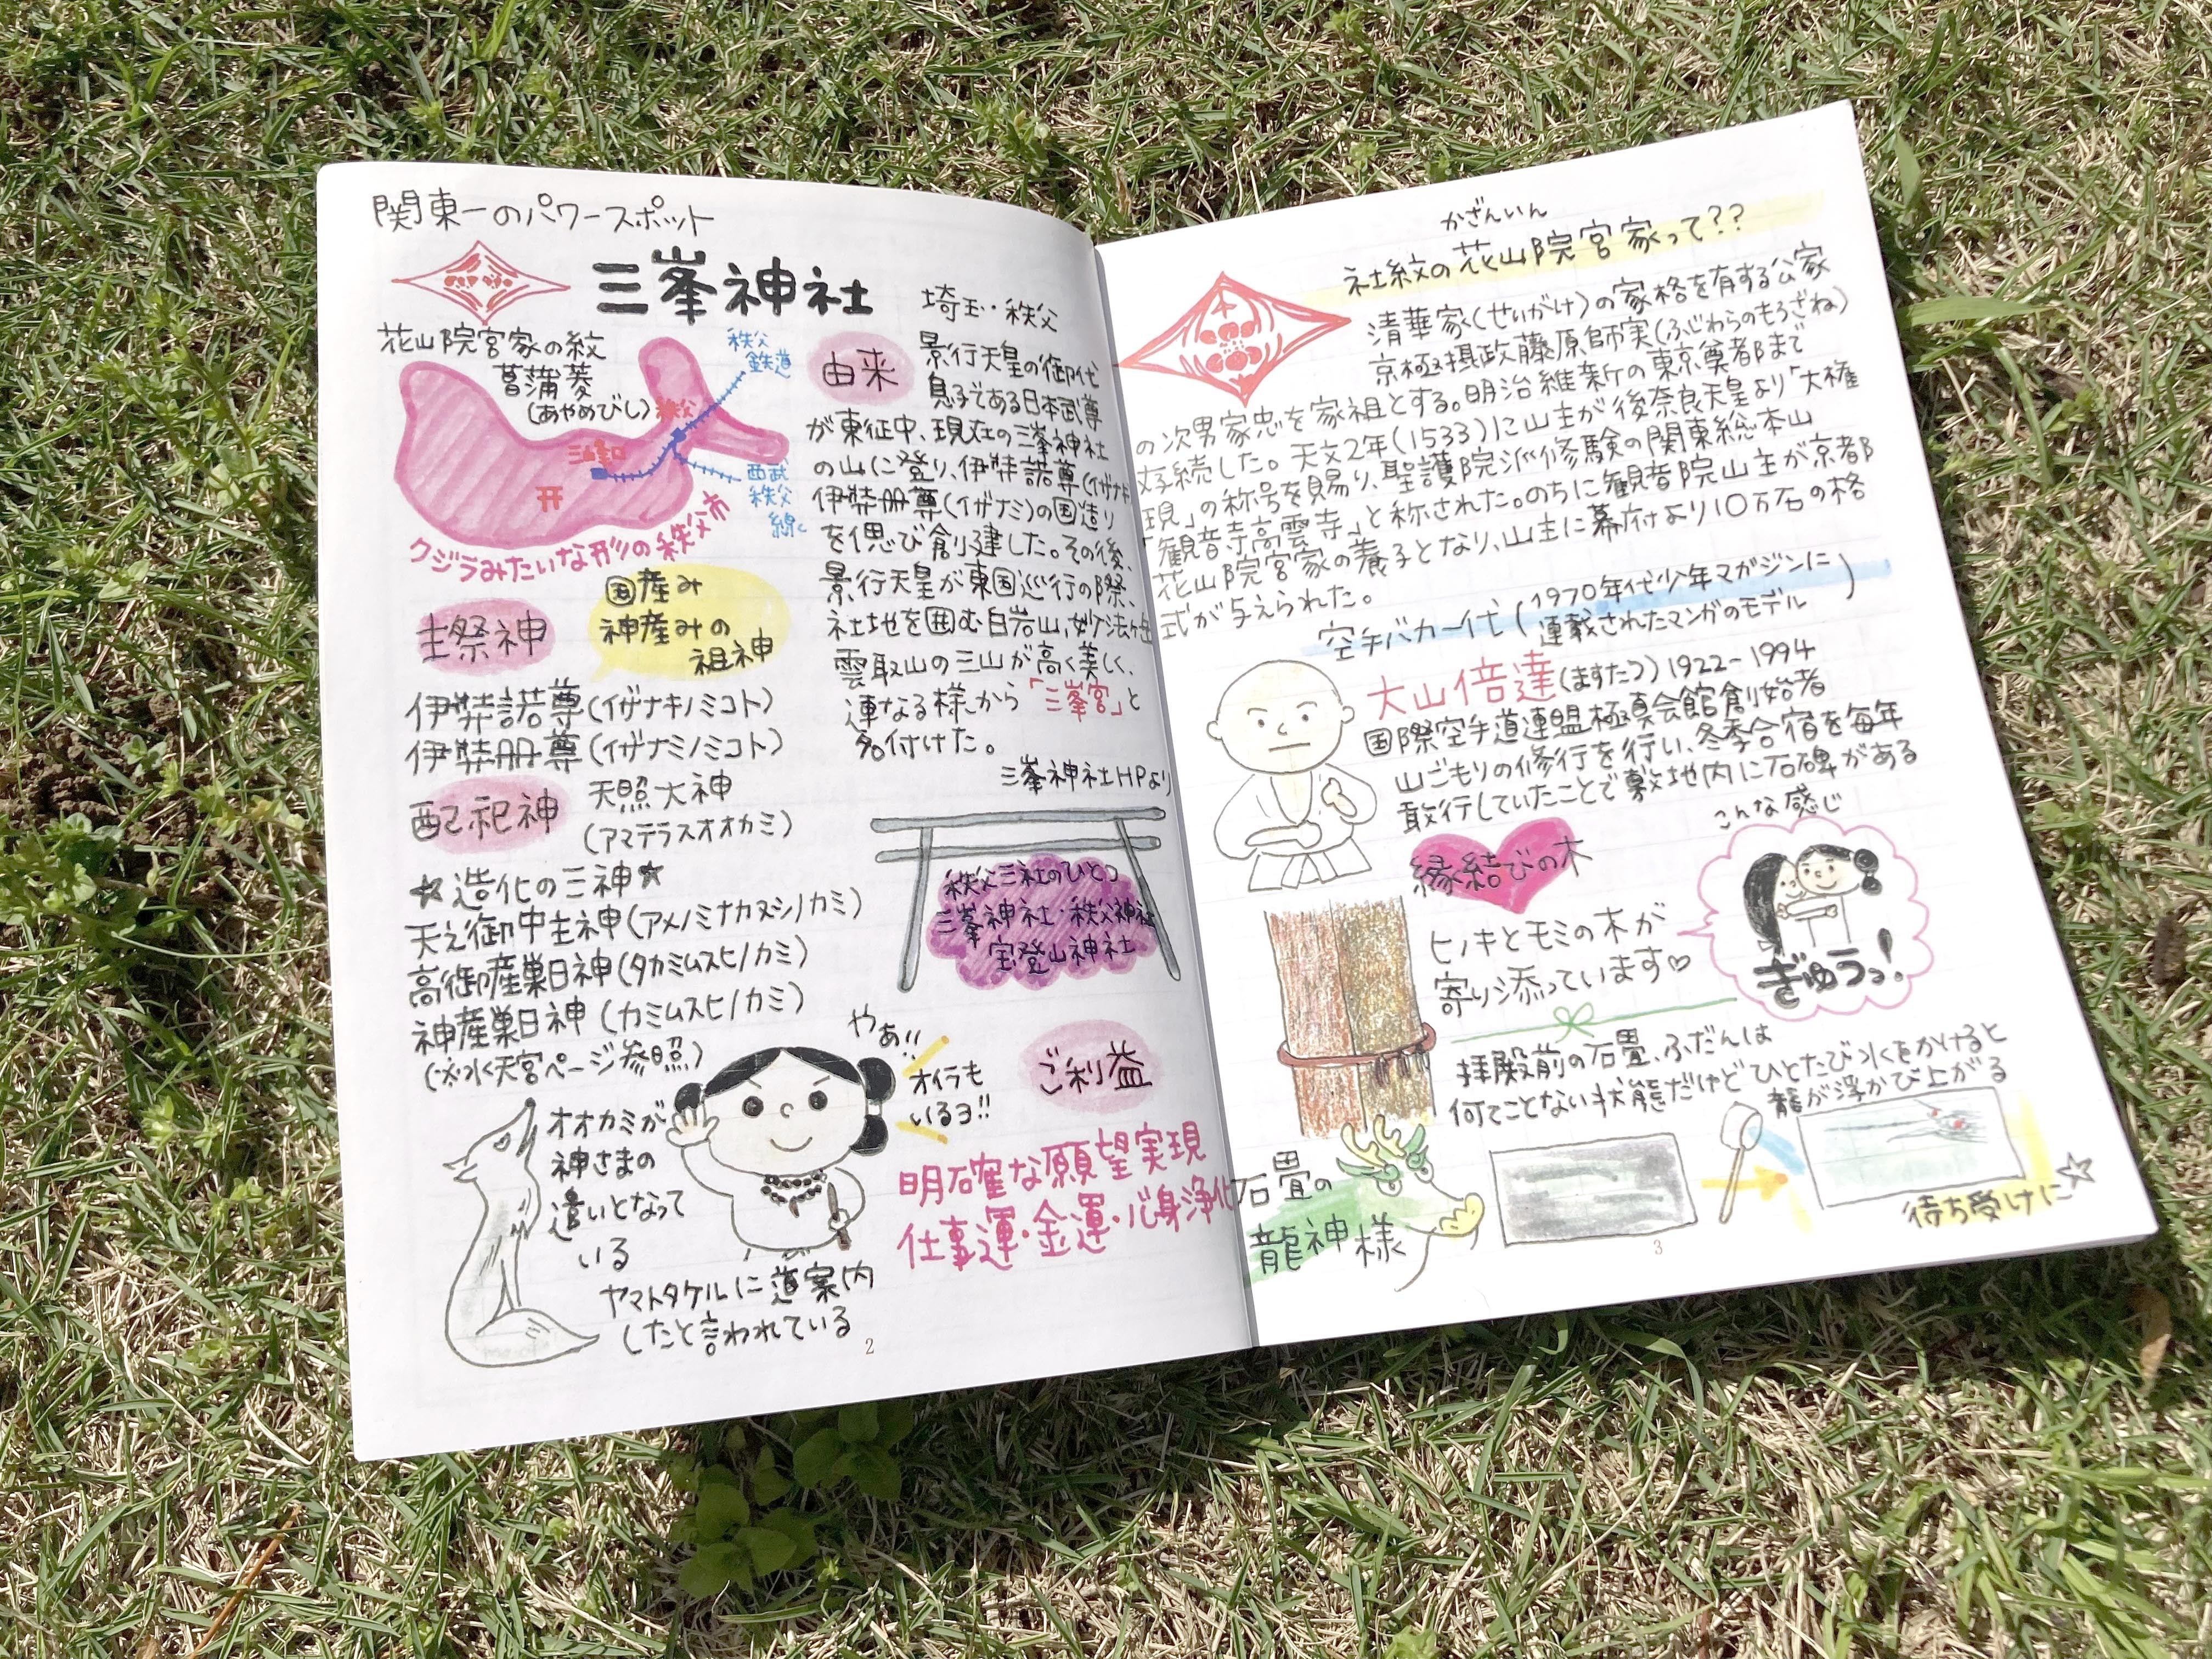 関東一のパワースポット
三峯神社
埼玉・秩父
花山院宮家の紋
菖蒲菱
(あやめびし)
秩父
鉄道
秩父
三峰口
西武
秩父
線
クジラみたいな形の秩父市
由来
景行天皇の御代
息子である日本武尊
が東征中、現在の三峯神社
の山に登り、伊弉諾尊(イザナキ
伊弉册尊(イザナミ)の国造り
を偲び創建した。その後、
景行天皇が東国巡行の際、
社地を囲む白岩山、妙法ヶ岳
雲取山の三山が高く美しく、
連なる様から「三峯宮」と
名付けた。
三峯神社HPより
主祭神
国産み
神産みの
祖神
伊弉諾尊(イザナキノミコト)
伊弉册尊(イザナミノミコト)
配祀神
天照大神
(アマテラスオオカミ)
☆造化の三神☆
天之御中主神(アメノミナカヌシノカミ)
高御産巣日神(タカミムスヒノカミ)
神産巣日神(カミムスヒノカミ)
(※水天宮ページ参照)
秩父三社のひとつ
三峯神社・秩父神社
宝登山神社
オオカミが
神さまの
遣いとなって
いる
ヤマトタケルに道案内
したと言われている
やぁ!!
オイラも
いるヨ!!
ご利益
明確な願望実現
仕事運・金運・心身浄化
2
かざんいん
社紋の花山院宮家って??
清華家(せいがけ)の家格を有する公家
京極摂政藤原師実(ふじわらのもろざね)
の次男家忠を家祖とする。明治維新の東京奠都まで
存続した。天文2年(1533)に山主が後奈良天皇より「大権
現」の称号を賜り、聖護院派修験の関東総本山
「観音寺高雲寺」と称された。のちに観音院山主が京都
花山院宮家の養子となり、山主に幕府より10万石の格
式が与えられた。
空手バカ一代(1970年代少年マガジンに
連載されたマンガのモデル)
大山倍達(ますたつ)1922-1994
国際空手道連盟極真会館創始者
山ごもりの修行を行い、冬季合宿を毎年
敢行していたことで敷地内に石碑がある
縁結びの木
ヒノキとモミの木が
寄り添っています♡
こんな感じ
ぎゅうっ!
拝殿前の石畳、ふだんは
何てことない状態だけどひとたび水をかけると
龍が浮かび上がる
石畳の
龍神様
待ち受けに☆
3